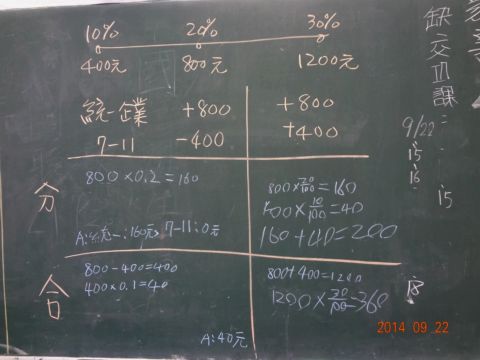 10% 20% 30%
400元 800元 1200元
統一企業 +800 +800
7-11 -400 +400
分
800×0.2=160
A:統一:160元, 7-11:0元
800×20/100=160
400×10/100=40
160+40=200
合
800-400=400
400×0.1=40
A:40元
800+400=1200
1200×30/100=360
缺交Ⅲ課:
9/22
15
16
15
18
2014 09 22